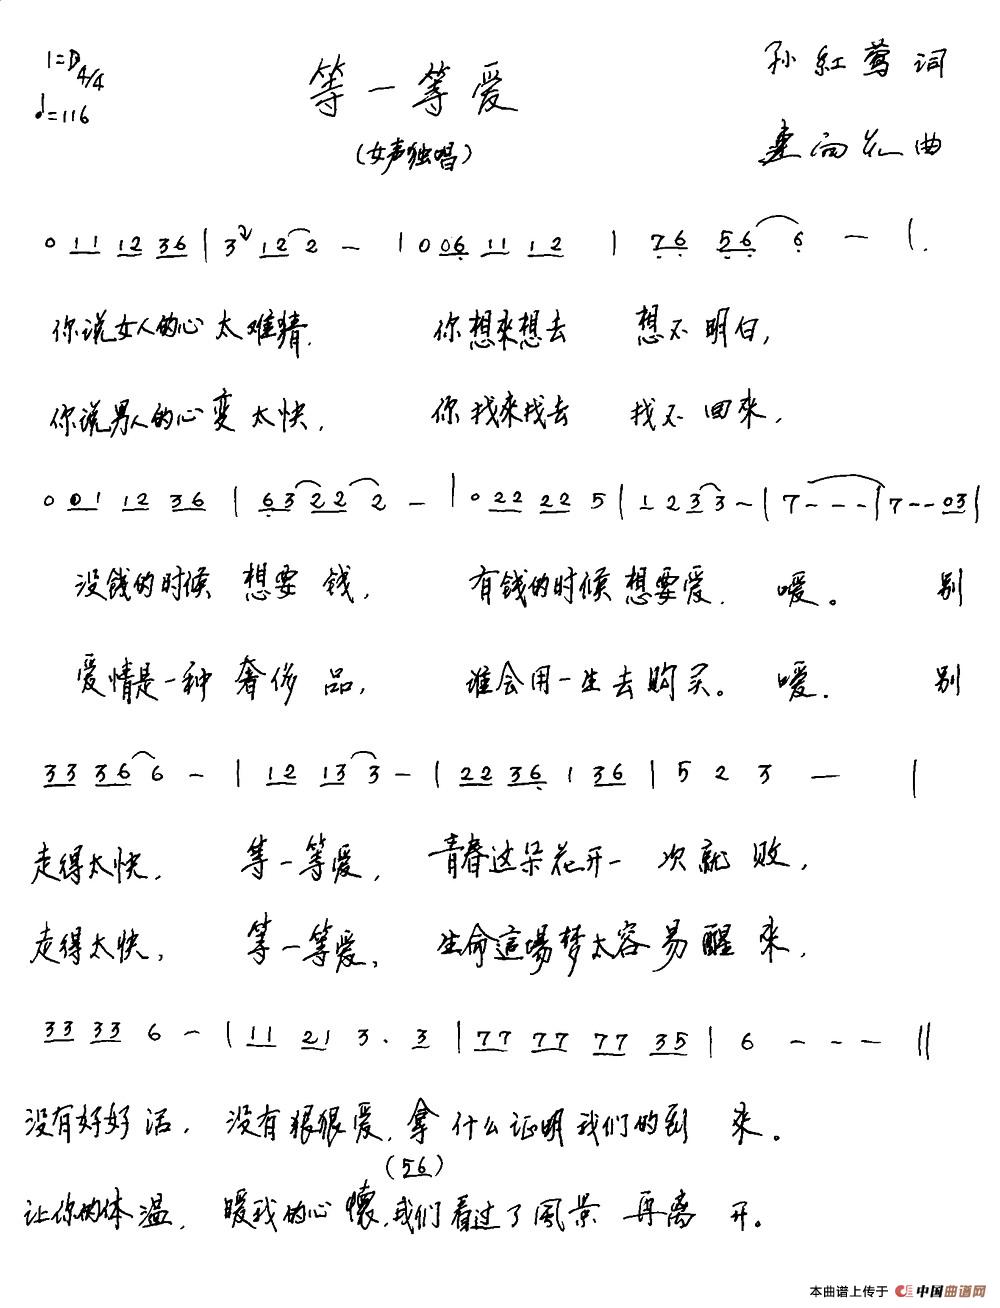 1=D 4/4
♩=116
等一等爱
(女声独唱)
孙紅莺词
曲
0 11 12 36 | 3 12 2 - | 0 06 11 12 | 76 56 6 - |
你说女人的心太难猜， 你想來想去 想不明白，
你说男人的心变太快， 你找來找去 找不回來，
0 01 12 36 | 63 22 2 - | 0 22 22 5 | 1 2 33 - | 7 - - - | 7 - - 03 |
没钱的时候 想要钱， 有钱的时候想要爱， 嗳。 别
爱情是一种奢侈品， 谁会用一生去购买。 嗳， 别
33 36 6 - | 12 13 3 - | 22 36 1 36 | 5 2 3 - |
走得太快， 等一等爱， 青春这朵花开一次就败，
走得太快， 等一等爱， 生命這場梦太容易醒来，
33 33 6 - | 11 21 3 . 3 | 77 77 77 35 | 6 - - - ||
没有好好活， 没有狠狠爱，拿什么证明我们的到来。
(56)
让你的体温， 暖我的心懷，我们看过了風景再离开。
本曲谱上传于 中国曲谱网